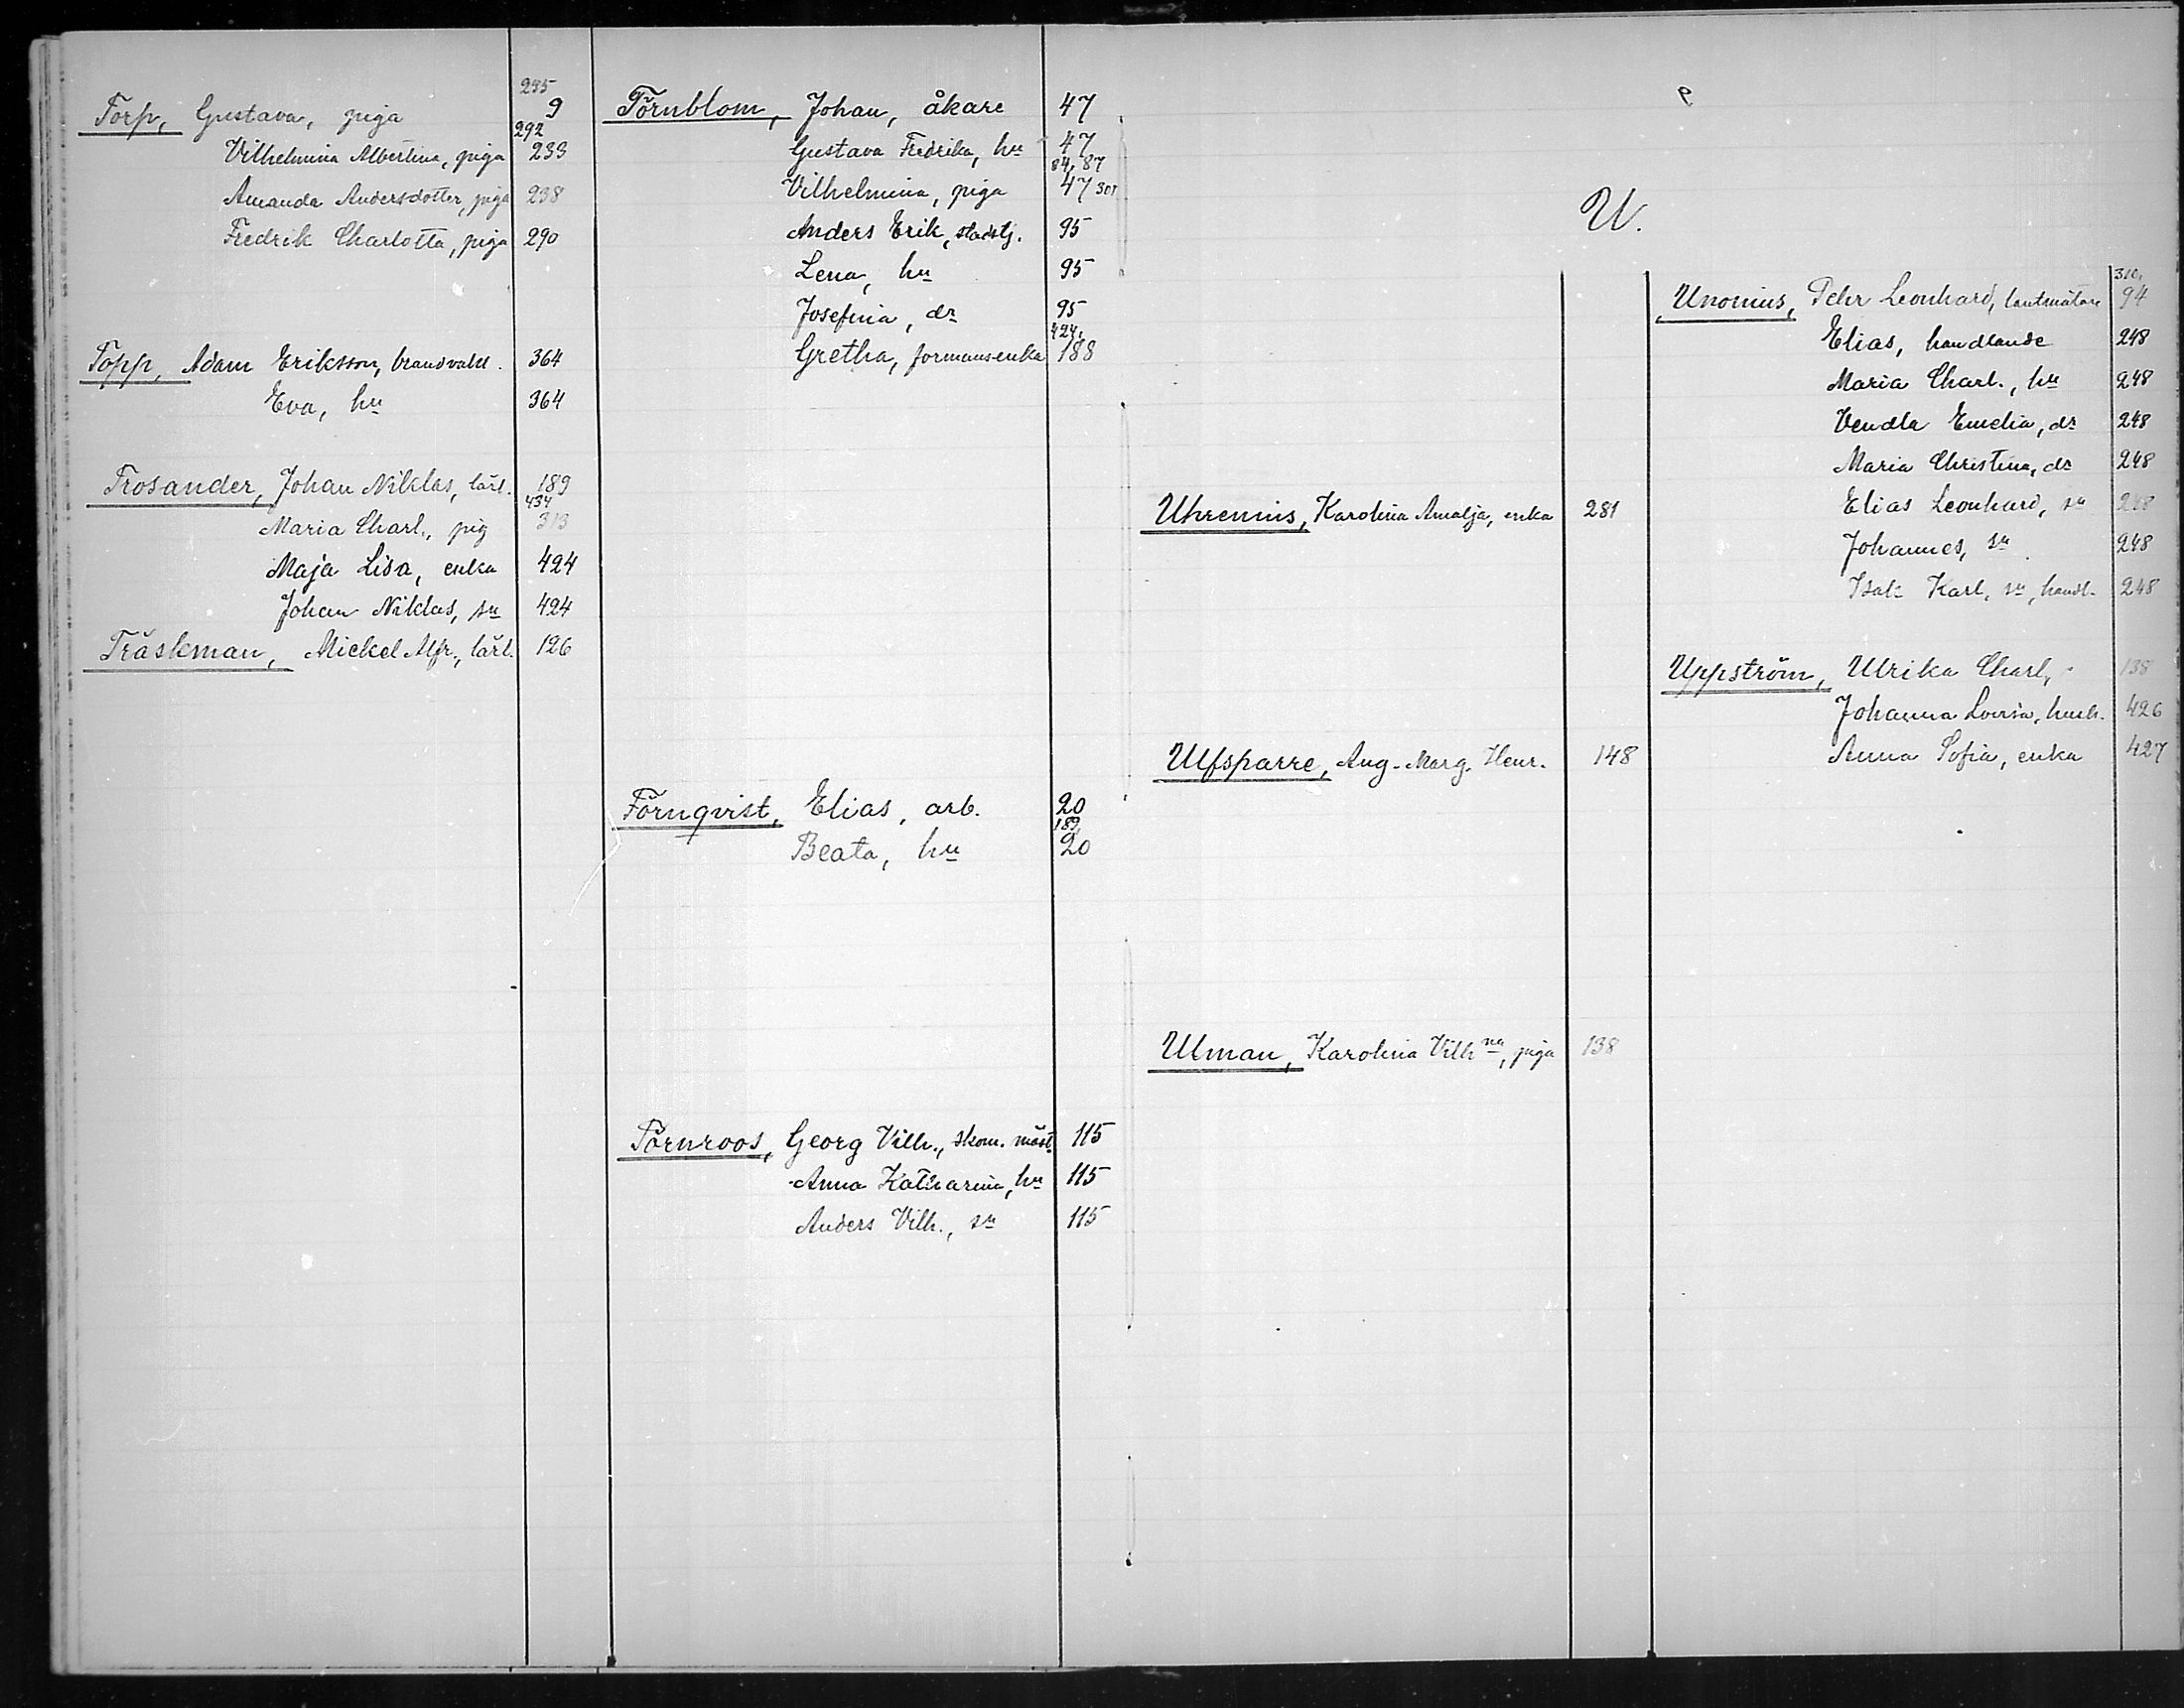 235
Torp, Gustava, piga 9
292
Vilhelmina Albertina, piga 233
Amanda Andersdotter, piga 238
Fredrik Charlotta, piga 290
Topp, Adam Eriksson, brandvakt. 364
Eva, hu 364
Trosander, Johan Niklas, lärl. 189
434
Maria Charl., pig 313
Maja Lisa, enka 424
Johan Niklas, sn 424
Träskman, Mickel Alfr., lärl. 126
Törnblom, Johan, åkare 47
Gustava Fredrika, hu 47
84, 87
Vilhelmina, piga 47 301
Anders Erik, stadstj. 95
Lena, hu 95
Josefina, dr 95
424,
Gretha, formansenka 188
Törnqvist, Elias, arb. 20
189,
Beata, hu 20
Törnroos, Georg Vilh., skom. mäst. 115
Anna Katharina, hu 115
Anders Vilh., sn 115
U.
Uhrenius, Karolina Amalja, enka 281
Ulfsparre, Aug. Marg. Henr. 148
Ulman, Karolina Vilhna, piga 138
310,
Unonius, Pehr Leonhard, lantmätare 94
Elias, handlande 248
Maria Charl., hu 248
Vendla Emelia, dr 248
Maria Christina, dr 248
Elias Leonhard, sn 248
Johannes, sn 248
Isak Karl, sn, handl. 248
Uppström, Ulrika Charl. 138
Johanna Lovisa, hush. 426
Anna Sofia, enka 427